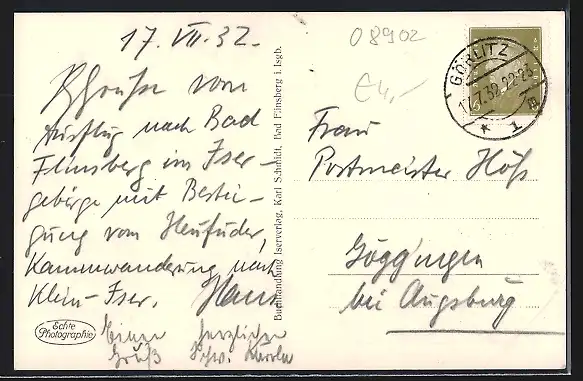 17. VII. 32.
Grüße vom
Ausflug nach Bad
Flinsberg im Iser-
gebirge mit Bestei-
gung vom Heufuder,
Kammwanderung nach
Klein-Iser. Hans
Einen herzlichen
Gruß Schw.
Echte
Photographie
Buchhandlung Iserverlag, Karl Schmidt, Bad Flinsberg i. Isgb.
08902
€4,-
GÖRLITZ
17.7.32.22-23
* 1 m
Frau
Postmeister Höß
Göggingen
bei Augsburg